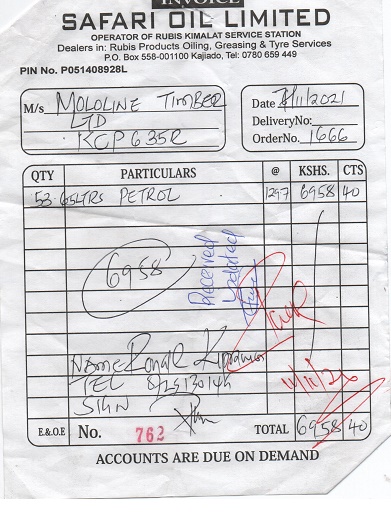 INVOICE
SAFARI OIL LIMITED
OPERATOR OF RUBIS KIMALAT SERVICE STATION
Dealers in: Rubis Products Oiling, Greasing & Tyre Services
P.O. Box 558-001100 Kajiado, Tel: 0780 659 449
PIN No. P051408928L
M/s MOLOLINE TIMBER
LTD
KCP 635R
Date /11/2021
DeliveryNo:
OrderNo. 1666
QTY PARTICULARS @ KSHS. CTS
53.65LTRS PETROL 1297 6958 40
6958
Received
Updated
Name Ronal
TEL
SIGN
E.&O.E No. 762 TOTAL 6958 40
ACCOUNTS ARE DUE ON DEMAND